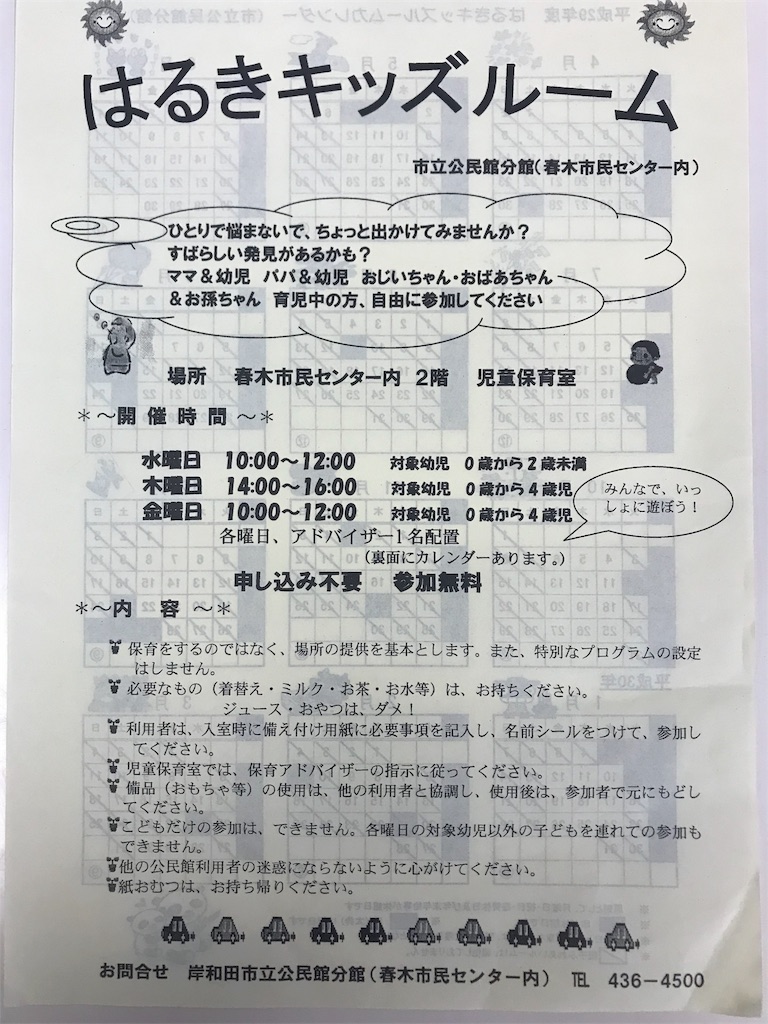 はるきキッズルーム
市立公民館分館(春木市民センター内)
ひとりで悩まないで、ちょっと出かけてみませんか?
すばらしい発見があるかも?
ママ&幼児 パパ&幼児 おじいちゃん・おばあちゃん
&お孫ちゃん 育児中の方、自由に参加してください
場所 春木市民センター内 2階 児童保育室
*~開催時間~*
水曜日 10:00~12:00 対象幼児 0歳から2歳未満
木曜日 14:00~16:00 対象幼児 0歳から4歳児
金曜日 10:00~12:00 対象幼児 0歳から4歳児
みんなで、いっ
しょに遊ぼう!
各曜日、アドバイザー1名配置
(裏面にカレンダーあります。)
申し込み不要 参加無料
*~内 容~*
保育をするのではなく、場所の提供を基本とします。また、特別なプログラムの設定
はしません。
必要なもの(着替え・ミルク・お茶・お水等)は、お持ちください。
ジュース・おやつは、ダメ!
利用者は、入室時に備え付け用紙に必要事項を記入し、名前シールをつけて、参加し
てください。
児童保育室では、保育アドバイザーの指示に従ってください。
備品(おもちゃ等)の使用は、他の利用者と協調し、使用後は、参加者で元にもどし
てください。
こどもだけの参加は、できません。各曜日の対象幼児以外の子どもを連れての参加も
できません。
他の公民館利用者の迷惑にならないように心がけてください。
紙おむつは、お持ち帰りください。
お問合せ 岸和田市立公民館分館(春木市民センター内) TEL 436-4500